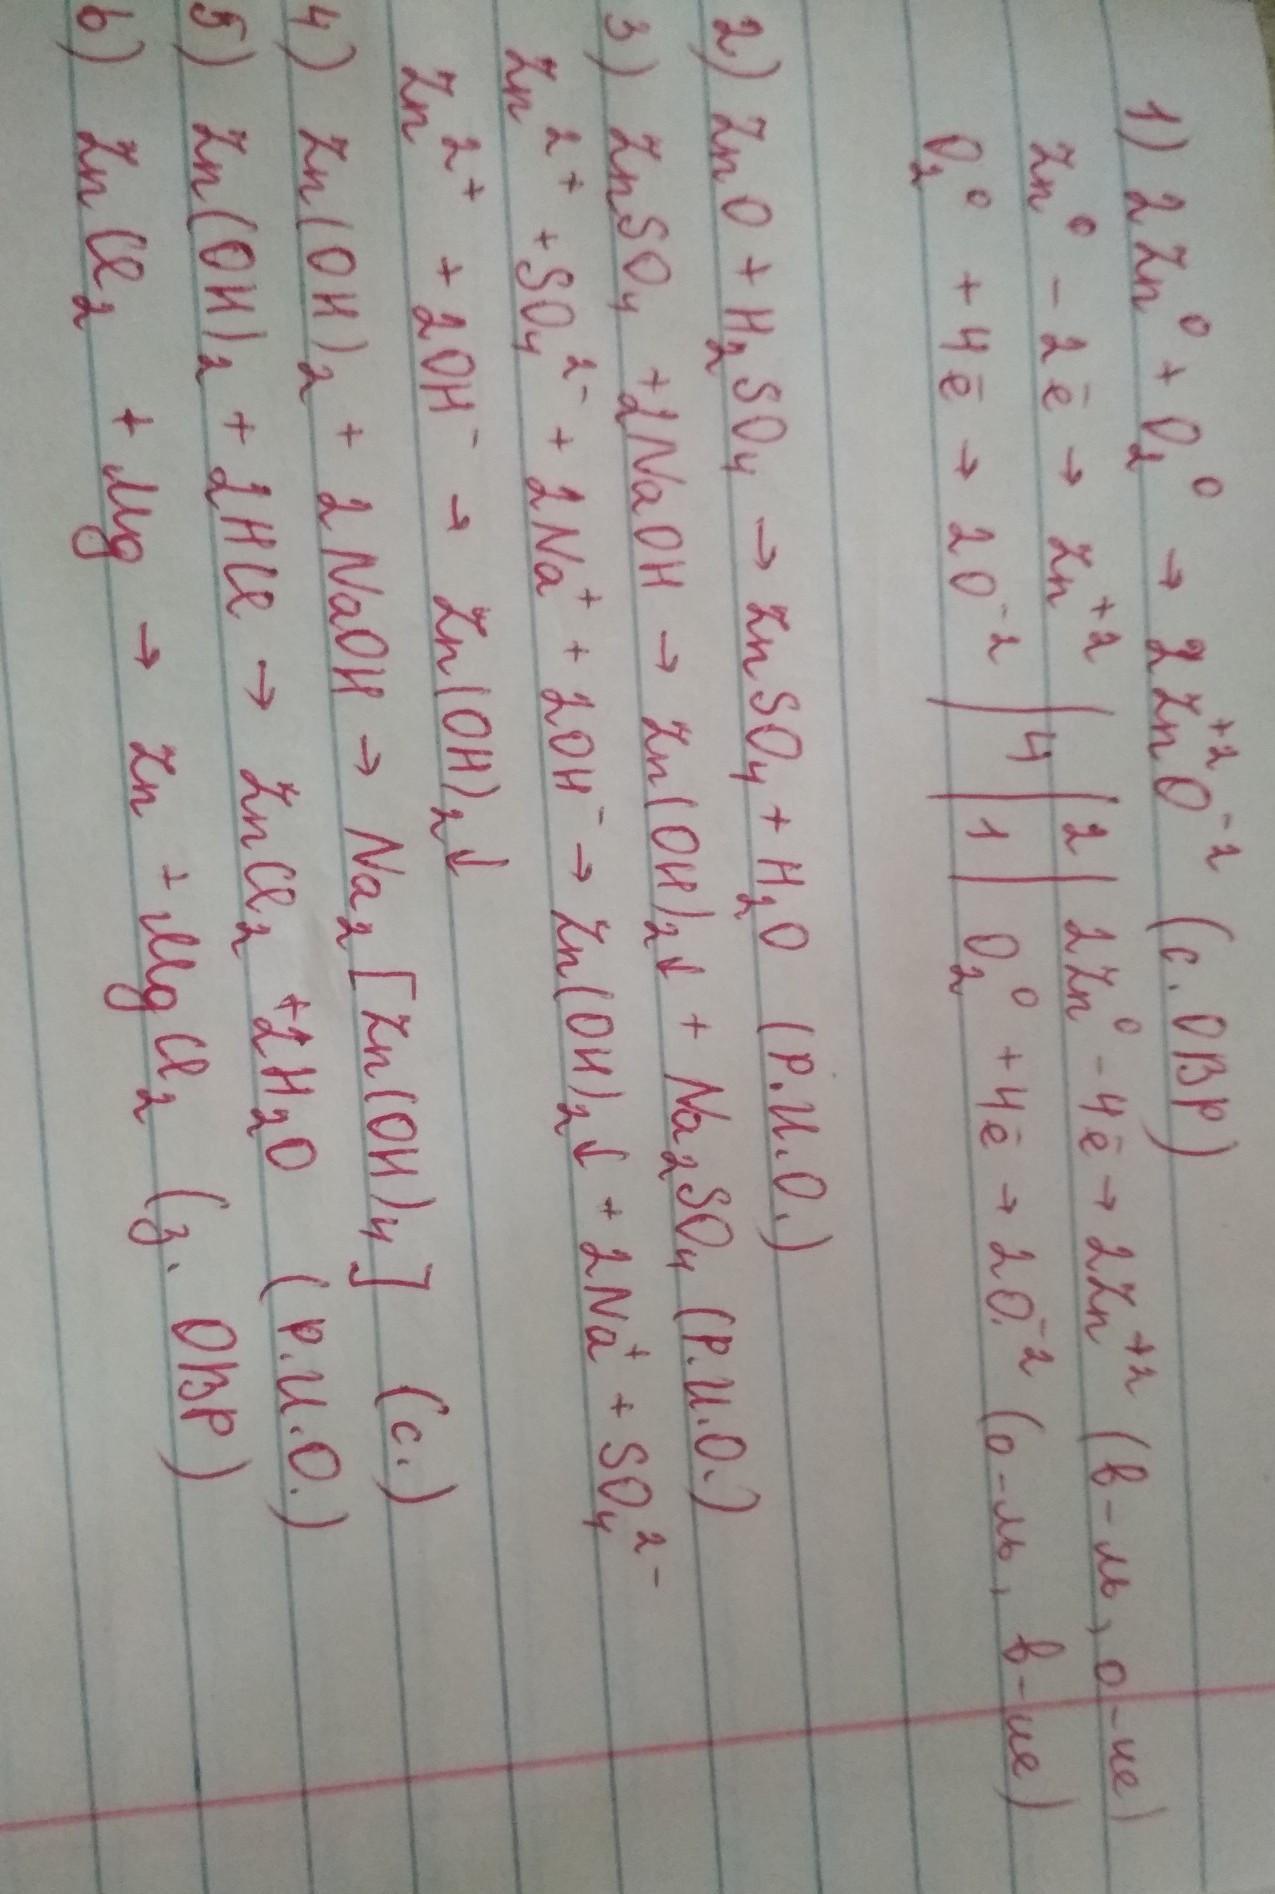 1) 2Zn⁰ + O₂⁰ → 2Zn⁺²O⁻² (с. ОВР)
Zn⁰ - 2ē → Zn⁺² | 4 | 2 | 2Zn⁰ - 4ē → 2Zn⁺² (в-ль, о-ие)
O₂⁰ + 4ē → 2O⁻² | | 1 | O₂⁰ + 4ē → 2O⁻² (о-ль, в-ие)
2) ZnO + H₂SO₄ → ZnSO₄ + H₂O (Р.И.О.)
3) ZnSO₄ + 2NaOH → Zn(OH)₂↓ + Na₂SO₄ (Р.И.О.)
Zn²⁺ + SO₄²⁻ + 2Na⁺ + 2OH⁻ → Zn(OH)₂↓ + 2Na⁺ + SO₄²⁻
Zn²⁺ + 2OH⁻ → Zn(OH)₂↓
4) Zn(OH)₂ + 2NaOH → Na₂[Zn(OH)₄] (с.)
5) Zn(OH)₂ + 2HCl → ZnCl₂ + 2H₂O (Р.И.О.)
6) ZnCl₂ + Mg → Zn + MgCl₂ (з. ОВР)